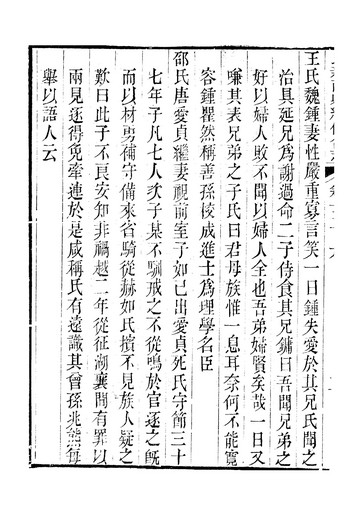 王氏魏鍾妻性嚴重寡言笑一日鍾失愛於其兄氏聞之
治具延兄為謝過命二子侍食其兄鏞曰吾聞兄弟之
好以婦人敗不聞以婦人全也吾弟婦賢矣哉一日又
嗛其表兄弟之子氏曰君母族惟一息耳奈何不能寬
容鍾瞿然稱善孫棱成進士為理學名臣
邵氏唐愛貞繼妻視前室子如已出愛貞死氏守節三十
七年子凡七人次子某不馴戒之不從鳴於官逐之旣
而以材勇補守備來省騎從赫如氏擯不見族人疑之
歎曰此子不良安知非禍越二年從征湖襄間有罪以
兩見逐得免牽連於是咸稱氏有遠識其曾孫兆熊每
舉以語人云